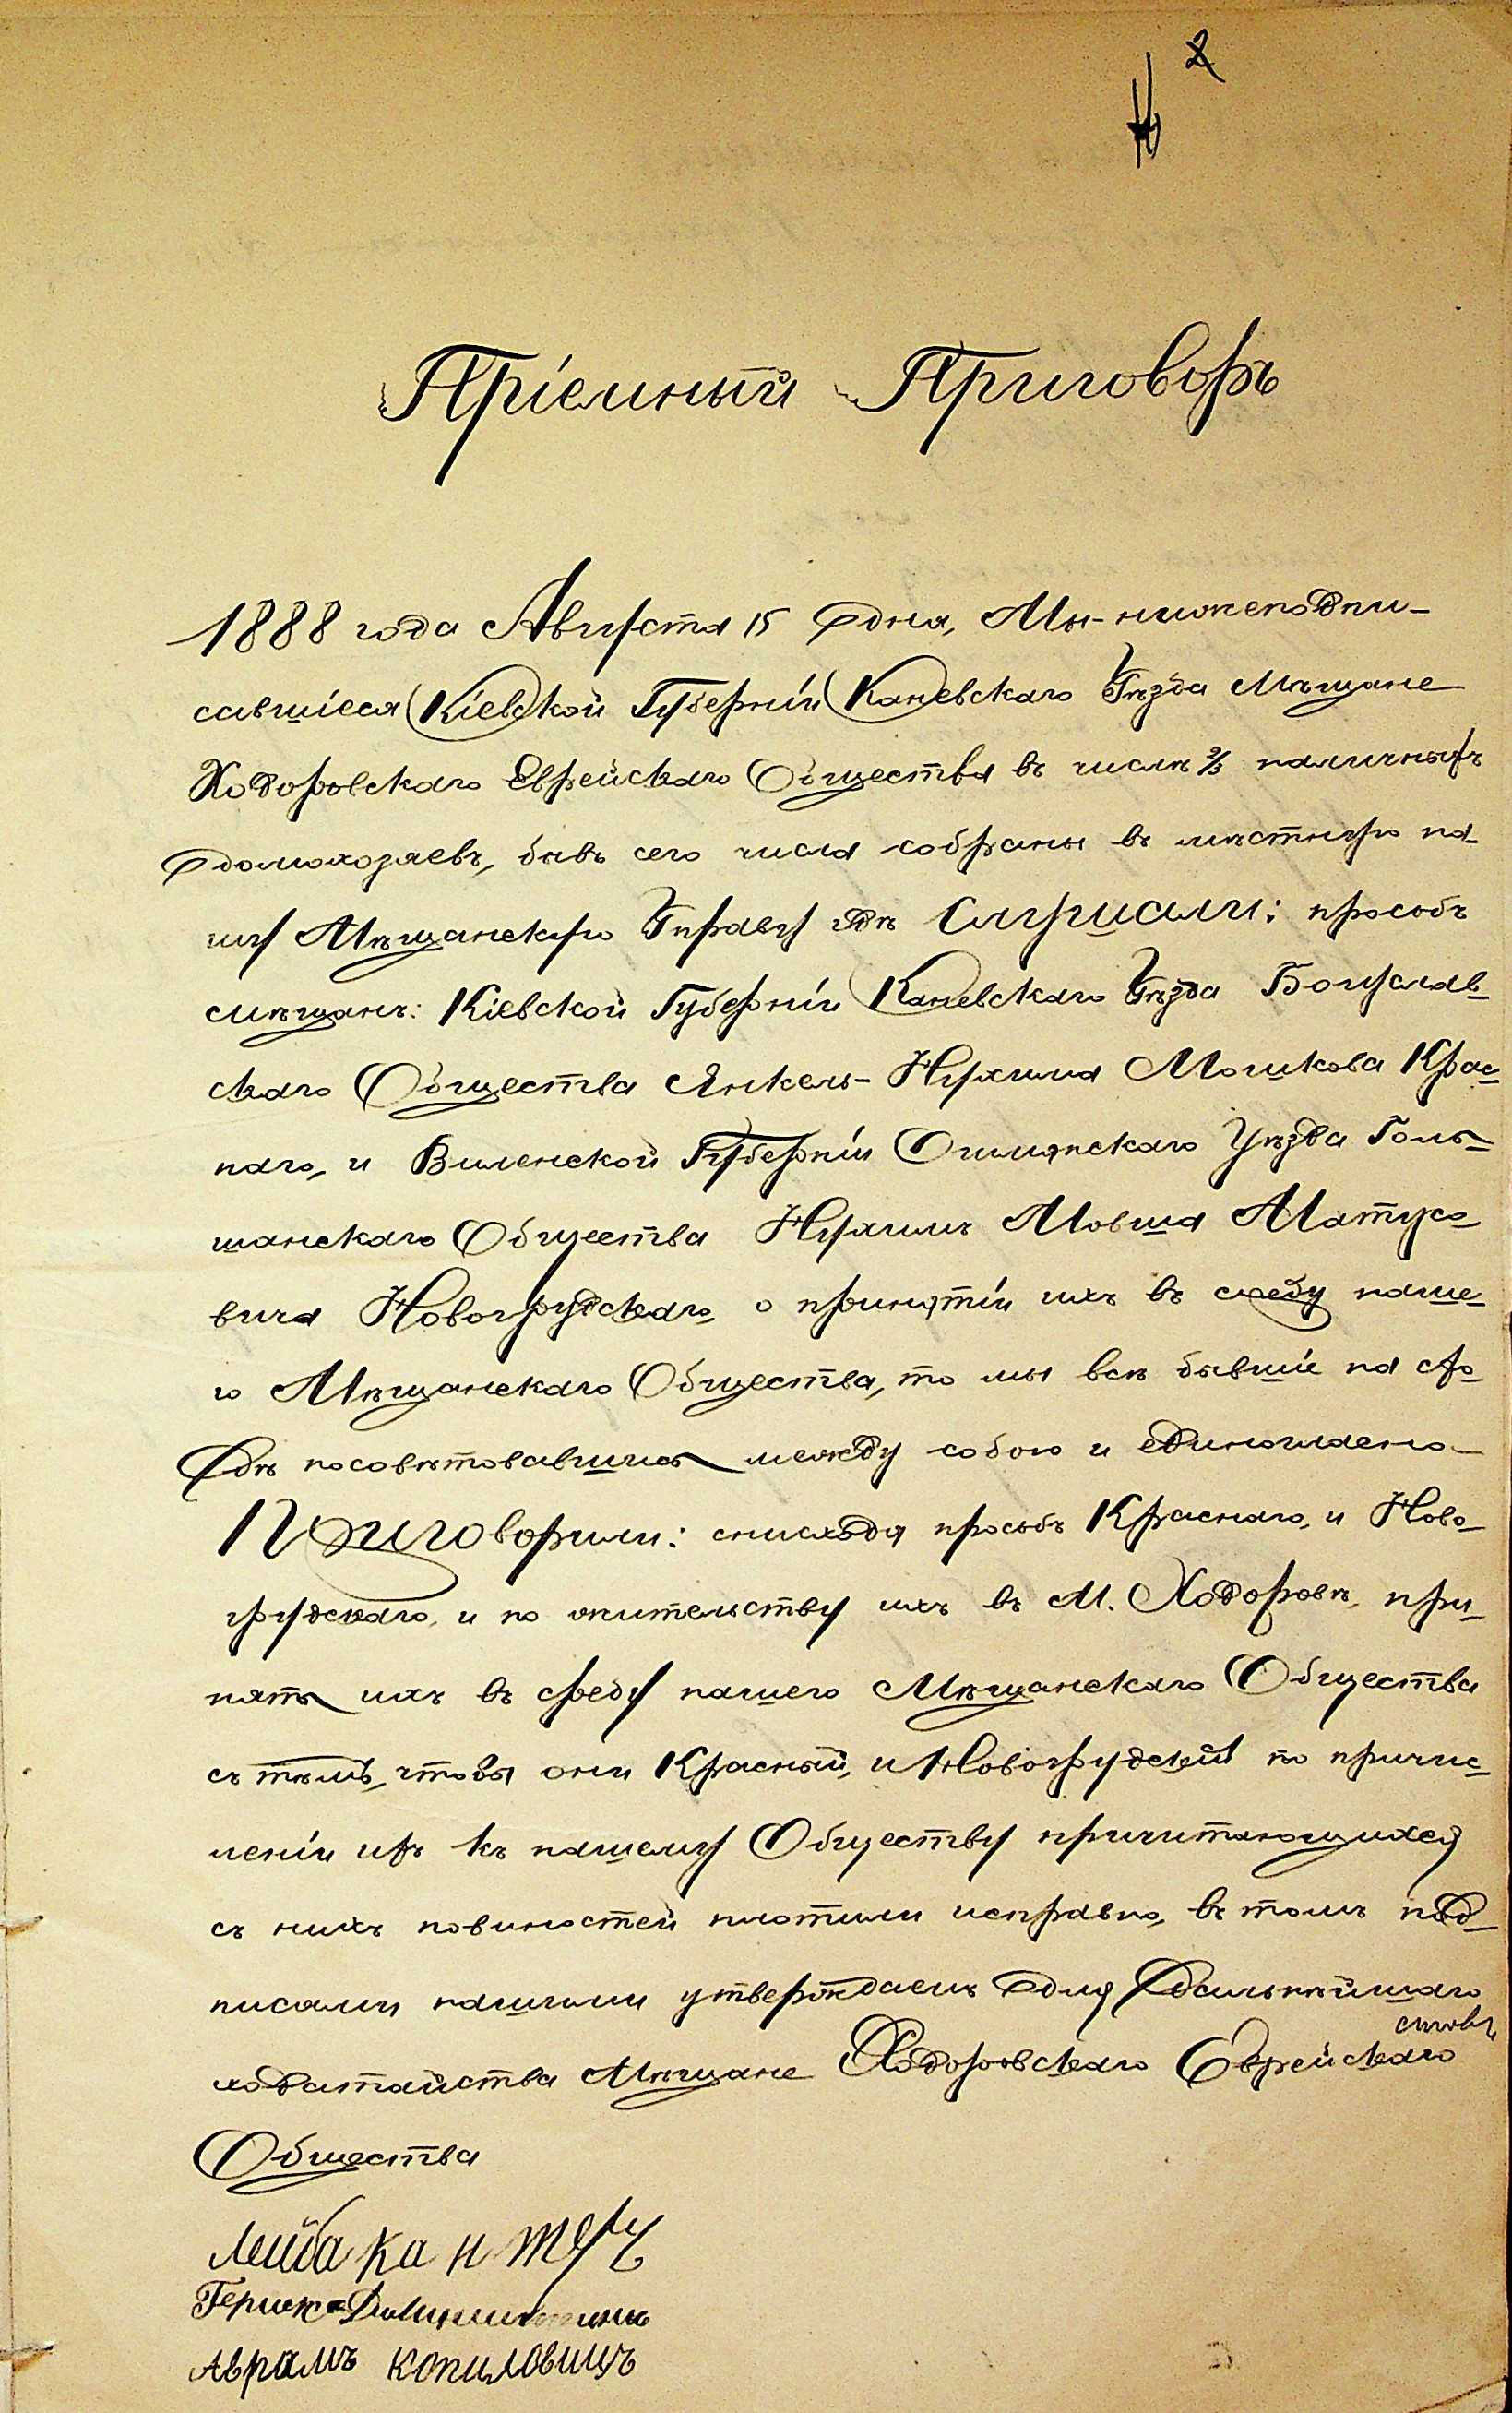 2
Пріемный Приговоръ
1888 года Августа 15 дня, Мы нижеподпи-
савшіеся Кіевской Губерніи Каневскаго Уѣзда Мѣщане
Ходоровскаго Еврейскаго Общества въ числѣ 2/3 наличныхъ
домохозяевъ, бывъ сего числа собраны въ мѣстную на-
шу Мѣщанскую Управу гдѣ Слушали: просьбъ
мѣщанъ: Кіевской Губерніи Каневскаго Уѣзда Богуслав-
скаго Общества Янкель-Нухима Мошкова Крас-
наго, и Виленской Губерніи Ошмянскаго Уѣзда Голь-
шанскаго Общества Нухимъ Мовша Матусо-
вича Новогрудскаго, о принятіи ихъ въ среду наше-
го Мѣщанскаго Общества, то мы всѣ бывшіе на схо-
дѣ посовѣтовавшись между собою и единогласно-
Приговорили: снисходя просьбъ Краснаго, и Ново-
грудскаго, и по жительству ихъ въ М. Ходоровѣ, при-
нять ихъ въ среду нашего Мѣщанскаго Общества
съ тѣмъ, чтобы они Красный, и Новогрудскій по причис-
леніи ихъ къ нашему Обществу причитающихся
съ нихъ повиностей платили исправно, въ томъ под-
писами нашими утверждаемъ для Дальнѣйшаго
ходатайства Мѣщане Ходоровскаго Еврейскаго
Общества
Лейба Кантеръ
Гершк
Аврамъ Копиловичъ